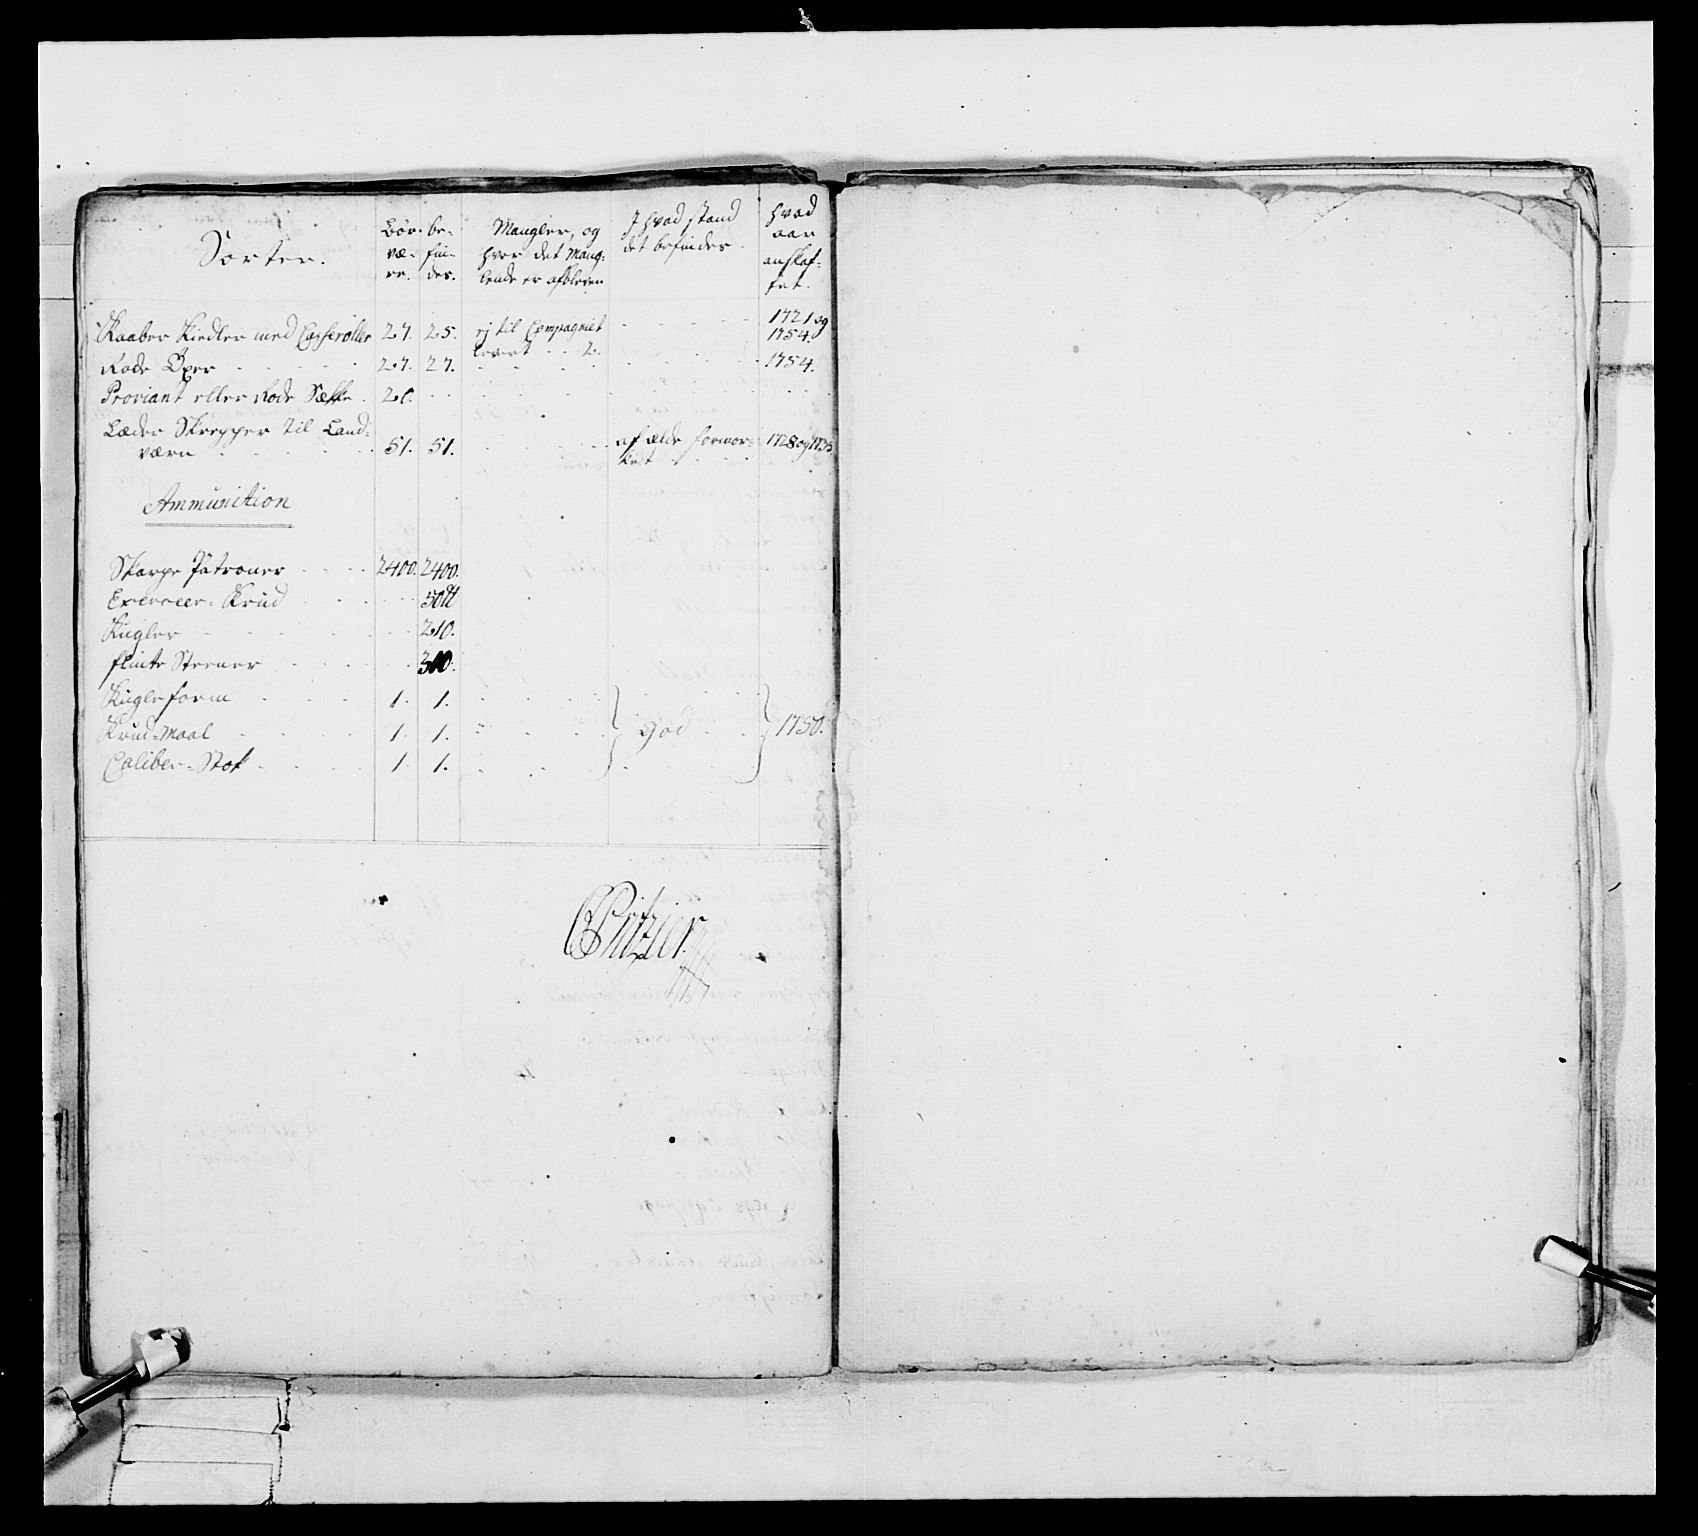 Sorter.
Bør væ- re.
be- fin- des.
Mangler, og hvor det Mang- lende er afbleven
I hvad stand det befindes.
hvad aar anskaf- fet.
Kaaber Kiedler med Casseroller 27. 25. ej til Compagniet levert - - 2. 1721 og 1754.
Rode Øxer 27. 27. 1754.
Proviant eller Rode Sække. 20.
Læder Skrepper til Land-
værn 51. 51. af ælde formor- ket 1728 og 1735
Ammunition
Skarpe Patroner 2400. 2400.
Exerceer-Krud 50 ℔
Kugler 210.
flinte Steener 300.
Kugleform 1. 1.
Krud-Maal 1. 1. God 1750.
Caliber-Stok 1. 1.